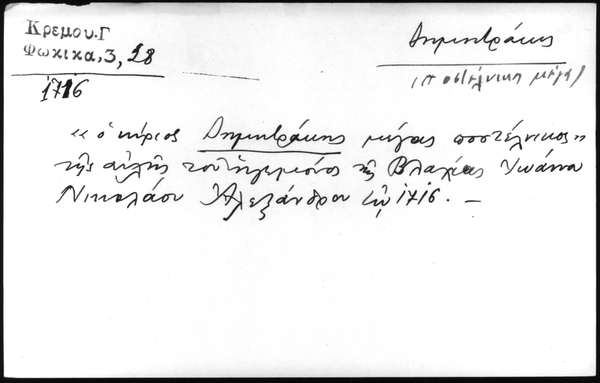 Κρεμου.Γ
Φωκικα,3, 28
1716
Δημητράκης
(ποστέλνικος μέγας)
«ὁ κύριος Δημητράκης μέγας ποστέλνικος»
τῆς αὐλῆς τοῦ ἡγεμόνος τῆς Βλαχίας Ἰωάννου
Νικολάου Ἀλεξάνδρου τῷ 1716. —